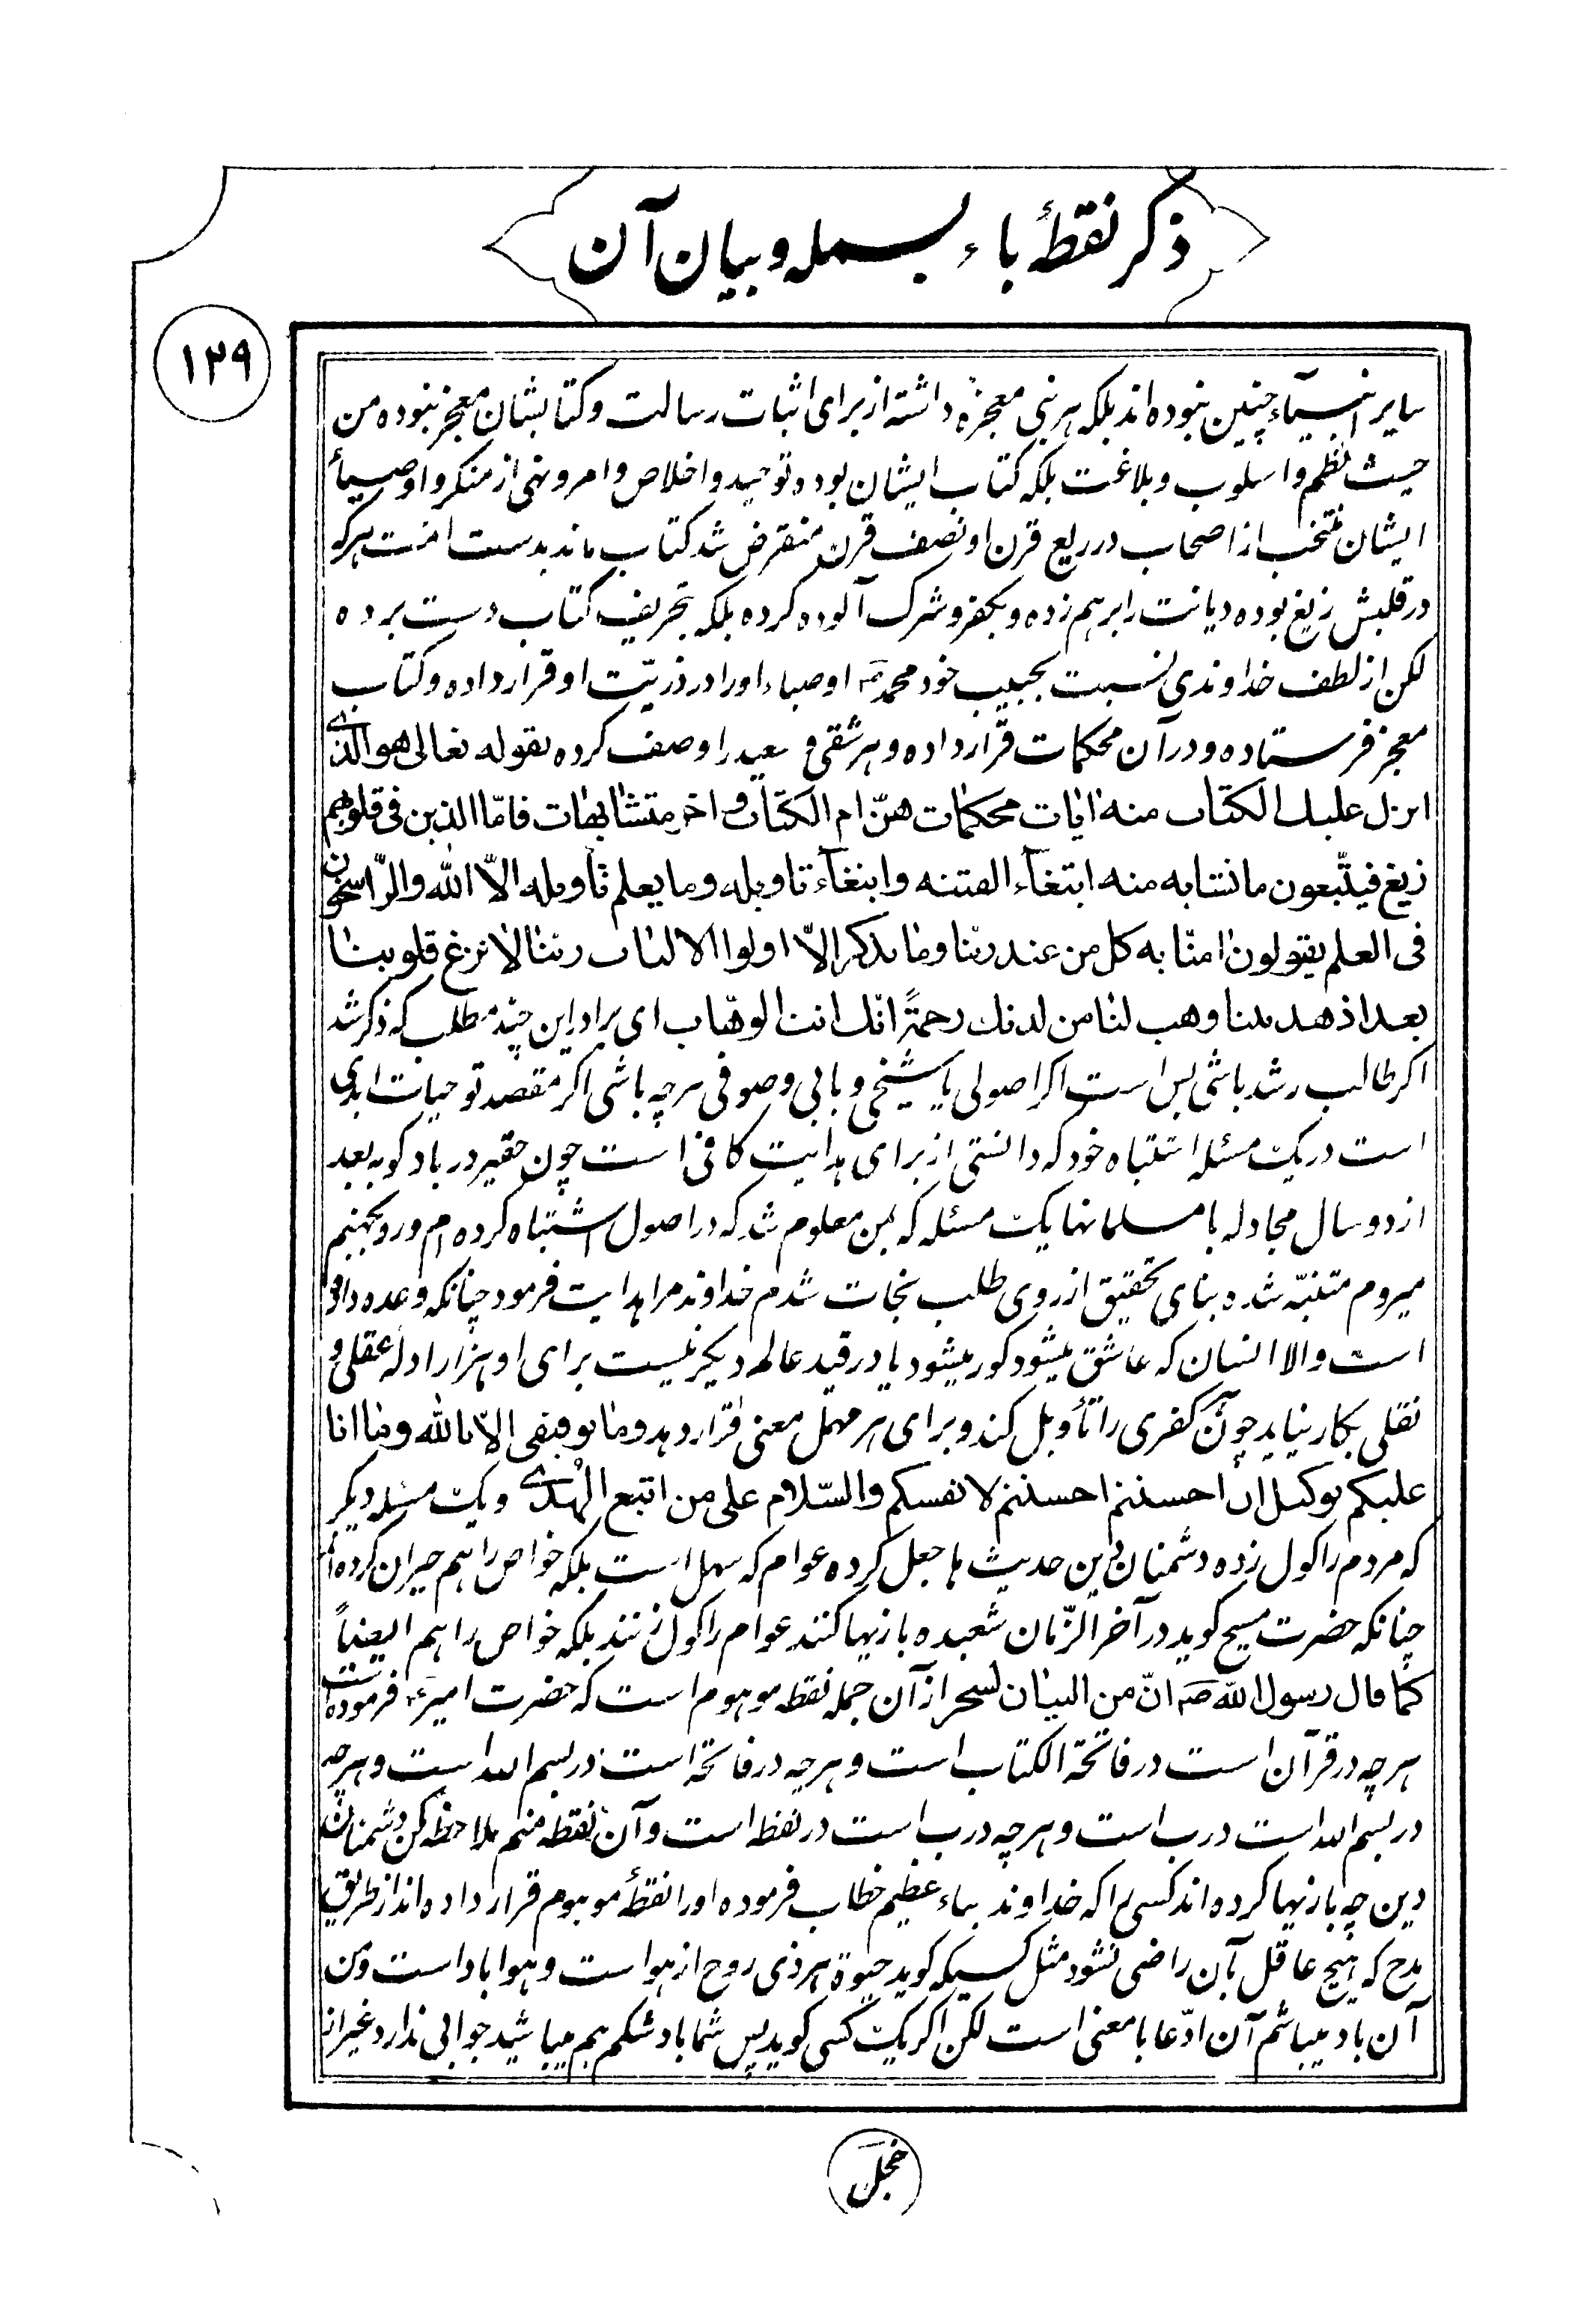 ذکر نقطهٔ باء بسمله و بیان آن
۱۲۹
سایر انبیآء چنین نبوده‌اند بلکه هر نبی معجزهٔ داشته از برای اثبات رسالت و کتابشان معجز نبوده من
حیث نظم و اسلوب و بلاغت بلکه کتاب ایشان بوده توحید و اخلاص و امر و نهی از منکر و اوصیأ
ایشان منتخب از اصحاب در ربع قرن او نصف قرن منقرض شد کتاب ماند بدست امّت هر که
در قلبش زیغ بوده دیانت را برهم زده و بکفر و شرک آلوده کرده بلکه بتحریف کتاب دست برده
لکن از لطف خداوندی نسبت بحبیب خود محمد ص اوصیاء او را در ذریّت او قرار داده و کتاب
معجز فرستاده و در آن محکمات قرار داده و هر شقی و سعید را وصف کرده بقوله تعالی هو الذی
انزل علیک الکتاب منه ایات محکمات هنّ ام الکتاب و اخر متشابهات فامّا الذین فی قلوبهم
زیغ فیتّبعون ما تشابه منه ابتغآء الفتنه و ابتغآء تاویله و ما یعلم تأویله الاّ الله و الرّاسخون
فی العلم یقولون امنّا به کل من عند ربنا و ما یذکر الاّ اولوا الالباب ربنا لا تزغ قلوبنا
بعد اذ هدیتنا و هب لنا من لدنک رحمةً انّک انت الوهّاب ای برادر این چند مطلب که ذکر شد
اکر طالب رشد باشی بس است اکر اصولی یا شیخی و بابی و صوفی هر چه باشی اکر مقصد تو حیات ابدی
است در یک مسئله اشتباه خود که دانستی از برای هدایت کافی است چون حقیر در بادکوبه بعد
از دو سال مجادله با مسلمانها یک مسئله که بمن معلوم شد که در اصول اشتباه کرده‌ام و رو بجهنم
میروم متنبّه شده بنای تحقیق از روی طلب نجات شدم خداوند مرا هدایت فرمود چنانکه وعده داده
است و الا انسان که عاشق میشود کور میشود یا در قید عالم دیکر نیست برای او هزار ادله عقلی و
نقلی بکار نیاید چون آن کفری را تأویل کند و برای هر مهمل معنی قرار دهد و ما توفیقی الاّ بالله و ما انا
علیکم بوکیل ان احسنتم احسنتم لانفسکم و السّلام علی من اتبع الهدی و یک مسئله دیکر
که مردم را کول زده دشمنان دین حدیث ها جعل کرده عوام که سهل است بلکه خواص را هم حیران کرده‌اند
چنانکه حضرت مسیح کوید در آخر الزّمان شعبده بازیها کنند عوام را کول زنند بلکه خواص را هم ایضاً
کما قال رسول الله ص انّ من البیان لسحر از آن جمله نقطه موهوم است که حضرت امیر ع فرموده است
هر چه در قرآن است در فاتحة الکتاب است و هر چه در فاتحه است در بسم الله است و هر چه
در بسم الله است در ب است و هر چه در ب است در نقطه است و آن نقطه منم ملاحظه کن دشمنان
دین چه بازیها کرده‌اند کسی را که خداوند بناء عظیم خطاب فرموده او را نقطهٔ موهوم قرار داده‌اند از طریق
مدح که هیچ عاقل بآن راضی نشود مثل کسیکه کوید حیوة هر ذی روح از هوا است و هوا باد است و من
آن باد میباشم آن ادّعا با معنی است لکن اکر یک کسی کوید پس شما باد شکم هم میباشید جوابی ندارد غیر از
خجل